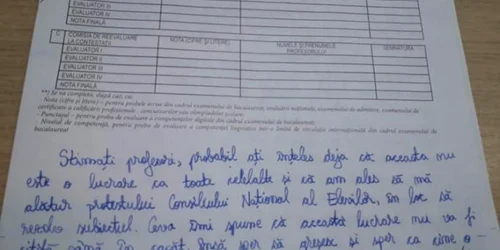 EVALUATOR III
EVALUATOR IV
NOTA FINALĂ
COMISIA DE REEVALUARE NOTA (CIFRE ŞI LITERE) NUMELE ŞI PRENUMELE SEMNĂTURA
LA CONTESTAŢII PROFESORULUI
EVALUATOR I
EVALUATOR II
EVALUATOR III
EVALUATOR IV
NOTA FINALĂ
*) Se va completa, după caz, cu:
Nota (cifre şi litere) - pentru probele scrise din cadrul examenului de bacalaureat, evaluării naţionale, examenului de admitere, examenului de
certificare a calificării profesionale, concursurilor sau olimpiadelor şcolare;
- Punctajul - pentru proba de evaluare a competenţelor digitale din cadrul examenului de bacalaureat;
- Nivelul de competenţă, pentru proba de evaluare a competenţei lingvistice într-o limbă de circulaţie internaţională din cadrul examenului de
bacalaureat
Stimați profesori, probabil ați înțeles deja că aceasta nu
este o lucrare ca toate celelalte și că am ales să mă
alătur protestului Consiliului Național al Elevilor, în loc să
rezolv subiectul. Ceva îmi spune că această lucrare nu va fi
citită până în capăt, însă sper să greșesc și sper ca cine o